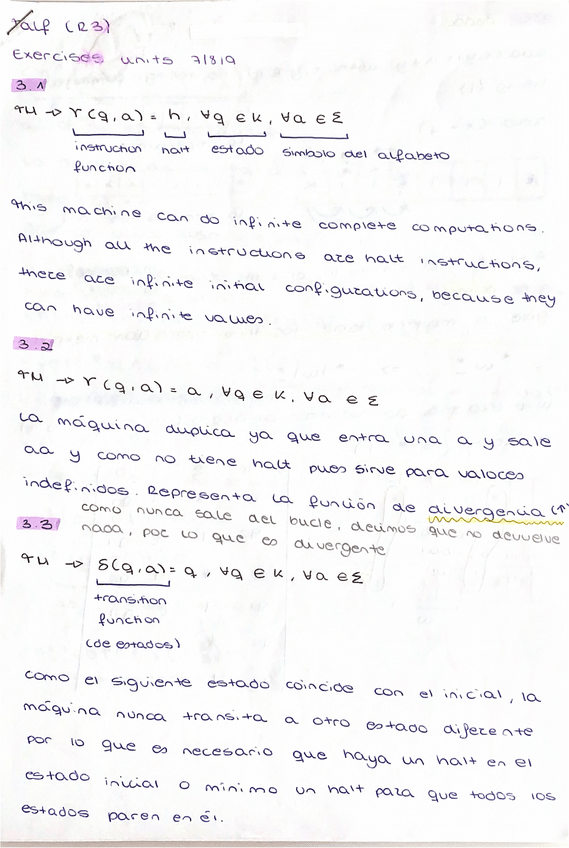 Talf (R3)
Exercises units 7/8/9
3.1
TM → γ(q,a) = h, ∀q ∈ K, ∀a ∈ Σ
instruction halt estado símbolo del alfabeto
function
This machine can do infinite complete computations.
Although all the instructions are halt instructions,
there are infinite initial configurations, because they
can have infinite values.
3.2
TM → γ(q,a) = a, ∀q ∈ K, ∀a ∈ Σ
La máquina duplica ya que entra una a y sale
aa y como no tiene halt pues sirve para valores
indefinidos. Representa la función de divergencia (↑
como nunca sale del bucle, decimos que no devuelve
3.3 nada, por lo que es divergente
TM → δ(q,a) = q, ∀q ∈ K, ∀a ∈ Σ
transition
function
(de estados)
Como el siguiente estado coincide con el inicial, la
máquina nunca transita a otro estado diferente
por lo que es necesario que haya un halt en el
estado inicial o mínimo un halt para que todos los
estados paren en él.